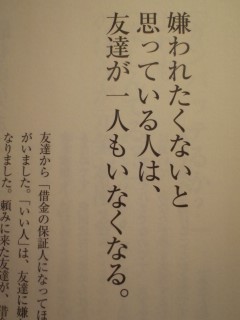 嫌われたくないと
思っている人は、
友達が一人もいなくなる。
友達から「借金の保証人になってほ
がいました。「いい人」は、友達に嫌
なりました。頼みに来た友達が、借